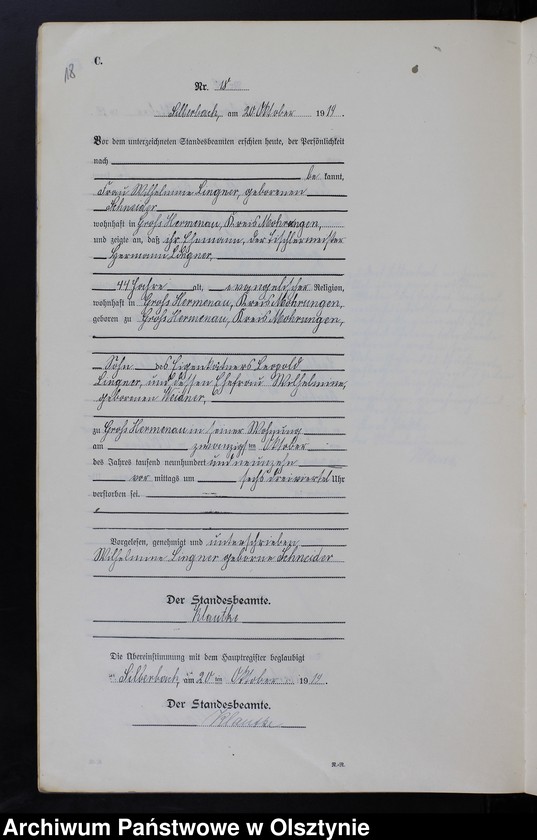 18
C.
Nr. 18
Silberbach, am 20. Oktober 1919.
Vor dem unterzeichneten Standesbeamten erschien heute, der Persönlichkeit
nach
be kannt,
Frau Wilhelmine Lingner, geborenen
Schneider,
wohnhaft in Groß Hermenau, Kreis Mohrungen,
und zeigte an, daß ihr Ehemann, der Tischlermeister
Hermann Lingner,
44 Jahre alt, evangelischer Religion,
wohnhaft in Groß Hermenau, Kreis Mohrungen,
geboren zu Groß Hermenau, Kreis Mohrungen,
Sohn des Eigenkätners Leopold
Lingner, und dessen Ehefrau Wilhelmine,
geborenen Weidner,
zu Groß Hermenau in seiner Wohnung
am zwanzigsten Oktober
des Jahres tausend neunhundert und neunzehn
vor mittags um sechs dreiviertel Uhr
verstorben sei.
Vorgelesen, genehmigt und unterschrieben
Wilhelmine Lingner geborne Schneider
Der Standesbeamte.
Klautke
Die Übereinstimmung mit dem Hauptregister beglaubigt
Silberbach, am 20 ten Oktober 1919.
Der Standesbeamte.
Klautke
Archiwum Państwowe w Olsztynie